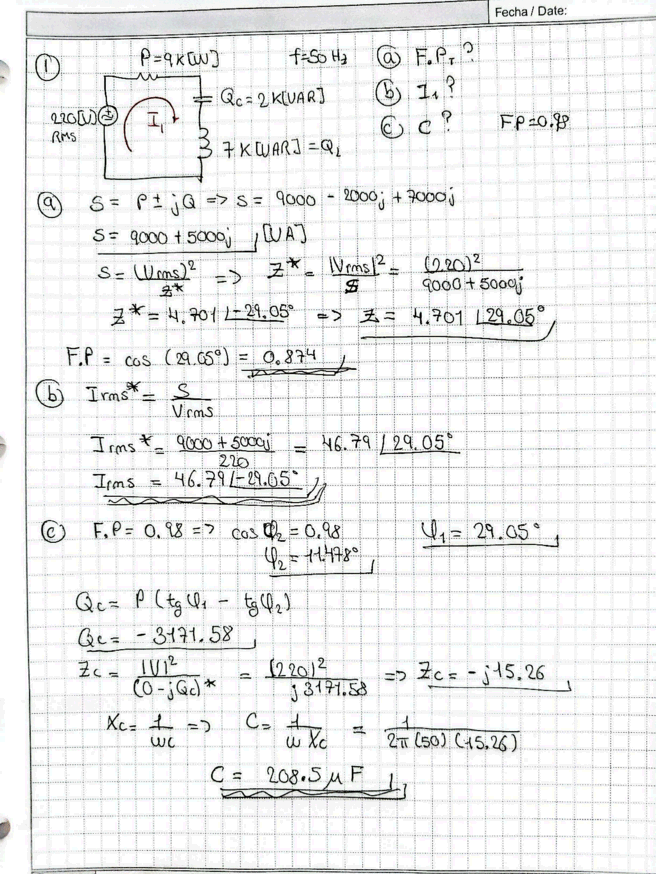 Fecha / Date:
① P=9K[W] f=50 Hz ⓐ F.P_T ?
220[V] RMS I₁ Qc = 2K[VAR] ⓑ I₁ ?
7K[VAR] = Q_L ⓒ C ? F.P=0.98
ⓐ S = P ± jQ => S = 9000 - 2000j + 7000j
S = 9000 + 5000j [VA]
S = (Vrms)²/Z* => Z* = |Vrms|²/S = (220)²/(9000+5000j)
Z* = 4.701 ∠-29.05° => Z = 4.701 ∠29.05°
F.P = cos (29.05°) = 0.874
ⓑ Irms* = S/Vrms
Irms* = (9000 + 5000j)/220 = 46.79 ∠29.05°
Irms = 46.79 ∠-29.05°
ⓒ F.P = 0.98 => cos φ₂ = 0.98 φ₁ = 29.05°
φ₂ = 11.478°
Qc = P (tgφ₁ - tgφ₂)
Qc = - 3171.58
Zc = |V|²/(0-jQc)* = (220)²/(j 3171.58) => Zc = -j15.26
Xc = 1/wc => C = 1/(w Xc) = 1/(2π (50) (15.26))
C = 208.5 μF